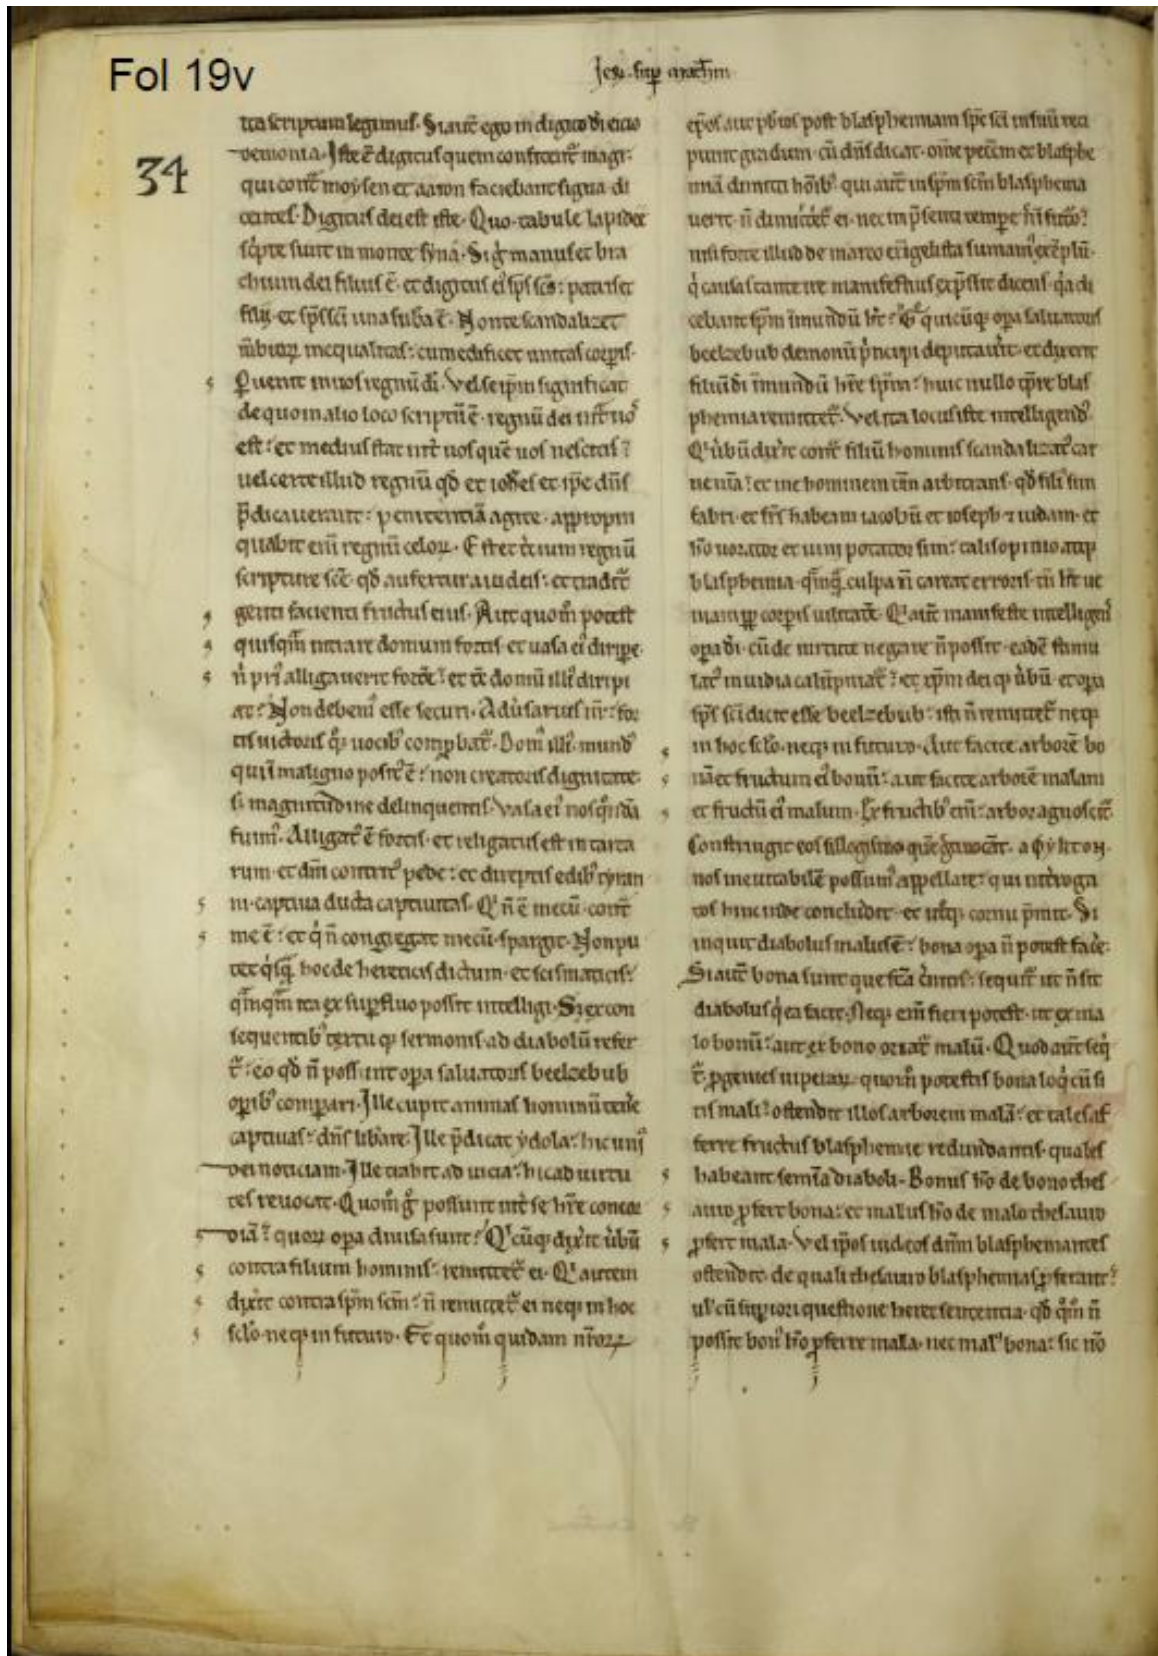 Fol 19v
Ieꝛ. sup̲ math̅m
34
ita scriptum legimus. Si aut̅ ego in digito di̅ eicio
demonia. Iste e̅ digitus quem confitent̅ magi:
qui cont̅ moysen et aaron faciebant signa. di
centes. Digitus dei est iste. Quo tabule lapidee
sc̍pte sunt in monte syna. Sig̍ manus et bra
chium dei filius e̅. et digitus ei᾽ sp̅s sc̅s: patris et
filii. et sp̅s sc̅i una sub̅a e̅. Non te scandalizet
m̅broꝝ inequalitas: cum edificet unitas corp̲is.
P̲uenit in uos regnu̅ di̅. Vel se ip̅m significat
de quo in alio loco scriptu̅ e̅. regnu̅ dei int̅ uo᾽
est: et medius stat int̅ uos que̅ uos nescitis:
uel certe illud regnu̅ qd̅ et ioh̅es et ip̅e dn̅s
p̅dicauerunt: penitentia̅ agite. app̲ropin
quabit eni̅ regnu̅ celoꝝ. Est et t̍cium regnu̅
scripture sc̅e qd̅ aufertur a iudeis: et tradet̅
genti facienti fructus eius. Aut quom̅ potest
quisqua̅ intrare domum fortis et uasa ei᾽ dirip̲e.
n̍ pri᾽ alligauerit forte̅: et t̅c domu̅ illi᾽ diripi
at: Non debem᾽ esse securi. Adu̍sarius nr̅: for
tis uictoris q̍ꝫ uocib᾽ comp̲bat̅. Dom᾽ illi᾽. mund᾽
qui in maligno posit᾽ e̅: non creatoris dignitate.
s; magnitudine delinquentis. Vasa ei᾽ nos q̍nda̅
fuim᾽. Alligat᾽ e̅ fortis. et religatus est in tarta
rum. et dn̅i contrit᾽ pede: et direptis edib᾽ tyran
ni. captiua ducta captiuitas. Q̍ n̅ e̅ mecu̅. cont̅
me e̅: et q̍ n̅ congregat mecu̅. spargit. Non pu
tet q̍sq̅. hoc de hereticis dictum. et scismaticis:
qua̅qua̅ ita ex sup̲fluo possit intelligi. Si ex con
sequentib᾽ textu qꝫ sermonis. ad diabolu̅ refer
t̅: eo qd̅ n̅ possunt op̲a saluatoris beelzebub
op̲ib᾽ compari. Ille cupit animas hominu̅ tene̅
captiuas: dn̅s lib̅are. Ille p̅dicat ydola: hic uni᾽
dei noticiam. Ille trahit ad uicia: hic ad uirtu
tes reuocat. Quom̅ g̊ possunt int̅ se h̅re concor
dia̅: quoꝝ op̲a diuisa sunt: Q̍cu̅qꝫ dix̍it u̍bu̅
contra filium hominis: remittet̅ ei. Q̍ autem
dix̍it contra sp̅m sc̅m: n̅ remittet̅ ei neqꝫ in hoc
sc̅lo. neqꝫ in futuro. Et quom̅ quidam nr̅oꝝ
ep̅os aut pb̅ros post blasphemiam sp̅c sc̅i in suu̅ reci
punt gradum. cu̅ dn̅s dicat. om̅e pecc̅m et blasphe
mia̅ dimitti ho̅ib᾽: qui aut̅ in sp̅m sc̅m blasphema
uerit. n̅ dimittet̅ ei. nec in p̅senti tempe̅ n̍ in fut᾽o:
nisi forte illud de marco eu̅gelista sumam᾽ exe̅plu̅.
q̍ causas tante ire manifestius exp̅ssit dicens. q̍a di
cebant sp̅m i̅mundu̅ h̅t: g̊ quicu̅qꝫ op̲a saluatoris
beelzebub demonu̅ p̍ncipi deputau̍it. et dixerit
filiu̅ di̅ i̅mundu̅ h̅re sp̅m: huic nullo tp̅re blas
phemia remittet̅. Vel ita locus iste intelligend᾽.
Q̍ u̍bu̅ dix̍it cont̅ filiu̅ hominis scandalizat᾽ car
ne mea̅: et me hominem ta̅n arbitrans. qd̅ fili᾽ sim
fabri. et fr̅s habeam iacobu̅ et ioseph ⁊ iudam. et
h̅o uorator et uini potator sim: talis opinio atqꝫ
blasphemia. q̅mq̅. culpa n̅ careat erroris. tn̅ h̅t ue
niam pp̲ corp̲is uilitate̅. Q̍ aut̅ manifeste intelligens
op̲a di̅. cu̅ de uirtute negare n̅ possit. eade̅ stimu
lat᾽ inuidia calu̅pniat̅: et xp̅m dei qꝫ u̍bu̅. et op̲a
sp̅s sc̅i dicit esse beelzebub: isti n̅ remittet̅ neqꝫ
in hoc sc̅lo. neqꝫ in futuro. Aut facite arbore̅ bo
na̅ et fructum ei᾽ bonu̅: aut facite arbore̅ malam
et fructu̅ ei᾽ malum. Ex fructib᾽ eni̅: arbor agnoscit̅.
Constringit eos sillogismo que̅ greci uocant. aφykton.
nos ineuitabile̅ possum᾽ appellare: qui int̍roga
tos hinc inde concludit. et ut̍qꝫ cornu p̅mit. Si
inquit diabolus malus e̅: bona op̲a n̅ potest face̅:
Si aut̅ bona sunt que fc̅a c̍nitis: sequit̅ ut n̅ sit
diabolus q̍ ea facit. Neqꝫ eni̅ fieri potest. ut ex ma
lo bonu̅: aut ex bono oriat̅ malu̅. Quod aut̅ seq̍
t̅. p̲genies uiperaꝝ. quom̅ potestis bona loq̍ cu̅ si
tis mali: ostendit illos arborem mala̅: et tales af
ferre fructus blasphemie redundantis. quales
habeant semi̅a diaboli. Bonus h̅o de bono thes
auro p̲fert bona: et malus h̅o de malo thesauro
p̲fert mala. Vel ip̅os iudeos dn̅m blasphemantes
ostendit. de quali thesauro blasphemias p̲ferant:
ul᾽ cu̅ sup̲iori questione heret sententia. qd̅ q̍m̅ n̅
possit bon᾽ h̅o p̲ferre mala. nec mal᾽ bona: sic no̅